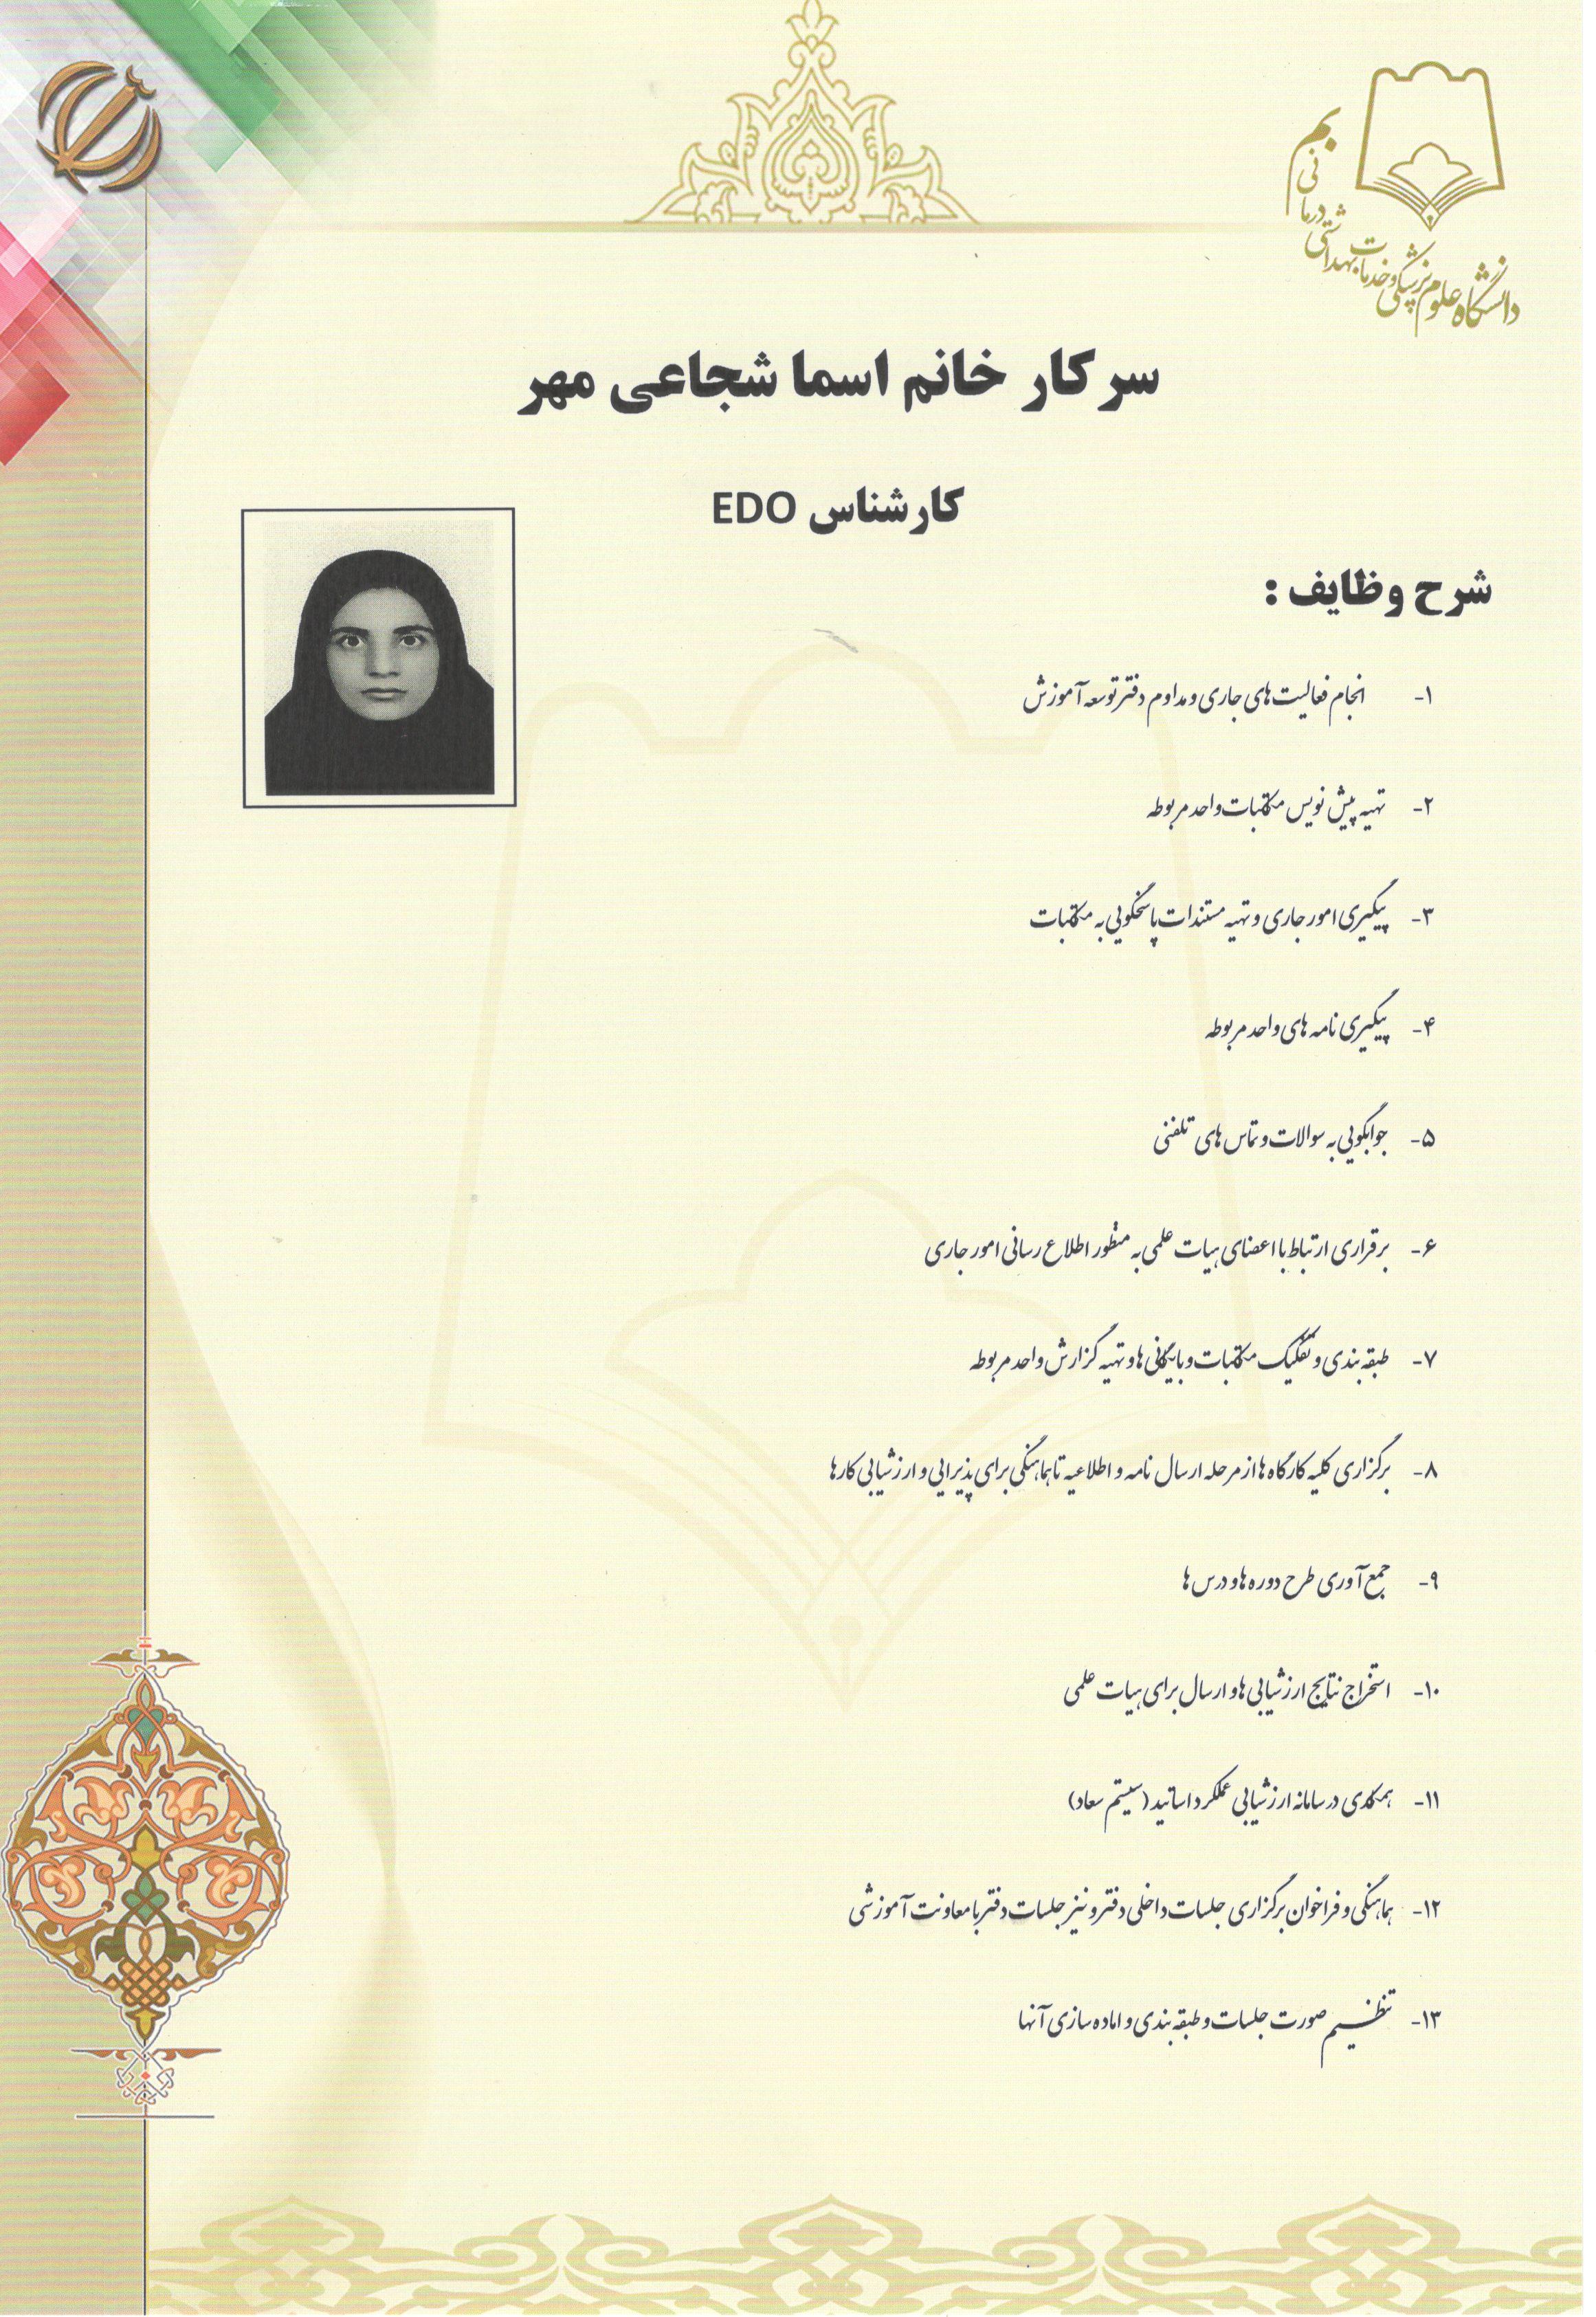 دانشگاه علوم پزشکی و خدمات بهداشتی درمانی بم
سرکار خانم اسما شجاعی مهر
کارشناس EDO
شرح وظایف :
۱- انجام فعالیت های جاری و مداوم دفتر توسعه آموزش
۲- تهیه پیش نویس مکاتبات واحد مربوطه
۳- پیگیری امور جاری و تهیه مستندات پاسخگویی به مکاتبات
۴- پیگیری نامه های واحد مربوطه
۵- جوابگویی به سوالات و تماس های تلفنی
۶- برقراری ارتباط با اعضای هیات علمی به منظور اطلاع رسانی امور جاری
۷- طبقه بندی و تفکیک مکاتبات و بایگانی ها و تهیه گزارش واحد مربوطه
۸- برگزاری کلیه کارگاه ها از مرحله ارسال نامه و اطلاعیه تا هماهنگی برای پذیرایی و ارزشیابی کارها
۹- جمع آوری طرح دوره ها و درس ها
۱۰- استخراج نتایج ارزشیابی ها و ارسال برای هیات علمی
۱۱- همکاری در سامانه ارزشیابی عملکرد اساتید (سیستم سعاد)
۱۲- هماهنگی و فراخوان برگزاری جلسات داخلی دفتر و نیز جلسات دفتر با معاونت آموزشی
۱۳- تنظیم صورت جلسات و طبقه بندی و اماده سازی آنها